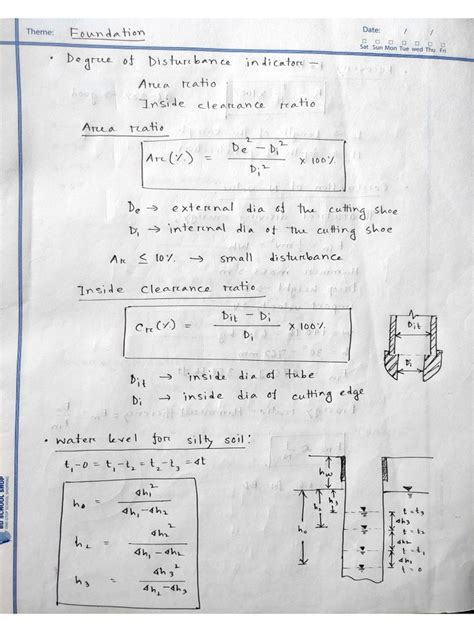 Theme: Foundation
Date: / /
Sat Sun Mon Tue wed Thu Fri
• Degree of Disturbance indicator —
Area ratio
Inside clearance ratio
Area ratio
Ar (%) = (De² - Di²) / Di² x 100%
De → external dia of the cutting shoe
Di → internal dia of the cutting shoe
Ar ≤ 10% → small disturbance
Inside Clearance ratio
Cr (%) = (Dit - Di) / Di x 100%
Dit
Di
Dit → inside dia of tube
Di → inside dia of cutting edge
• Water level for silty soil:
t₁-0 = t₁-t₂ = t₂-t₃ = Δt
h₀ = Δh₁² / (Δh₁ - Δh₂)
h₂ = Δh₂² / (Δh₁ - Δh₂)
h₃ = Δh₃² / (Δh₂ - Δh₃)
hw
h₀
h₂
h₃
t = t₃
Δh₃
t = t₂
Δh₂
t = t₁
Δh₁
t = 0